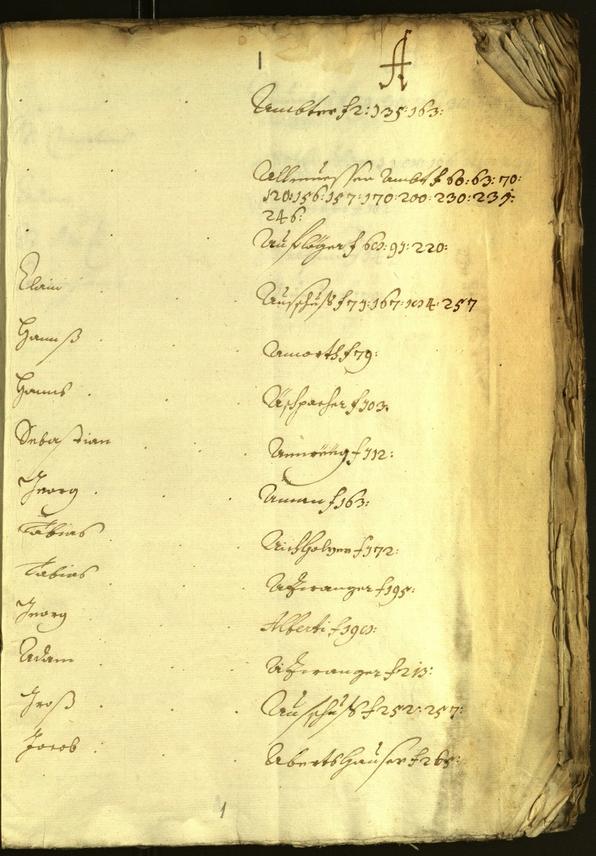 A
Ambter f 2: 135: 163:
Allmuessen Ambt f 60: 63: 70:
120: 156: 157: 170: 200: 230: 231:
246:
Aufleger f 60: 91: 220:
Elain
Ausschuß f 71: 167: 257
Hannß
Amorth f 79:
Hanns
Aschpacher f 103.
Sebastian
f 112:
Georg
Aman f 163:
Tobias
Aichholzer f 172:
Tobias
Azwanger f 195:
Georg
Alberti f 190:
Adam
Azwanger f 213:
Ausschuß f 252: 257:
Jacob
Abertshauser f 265:
1